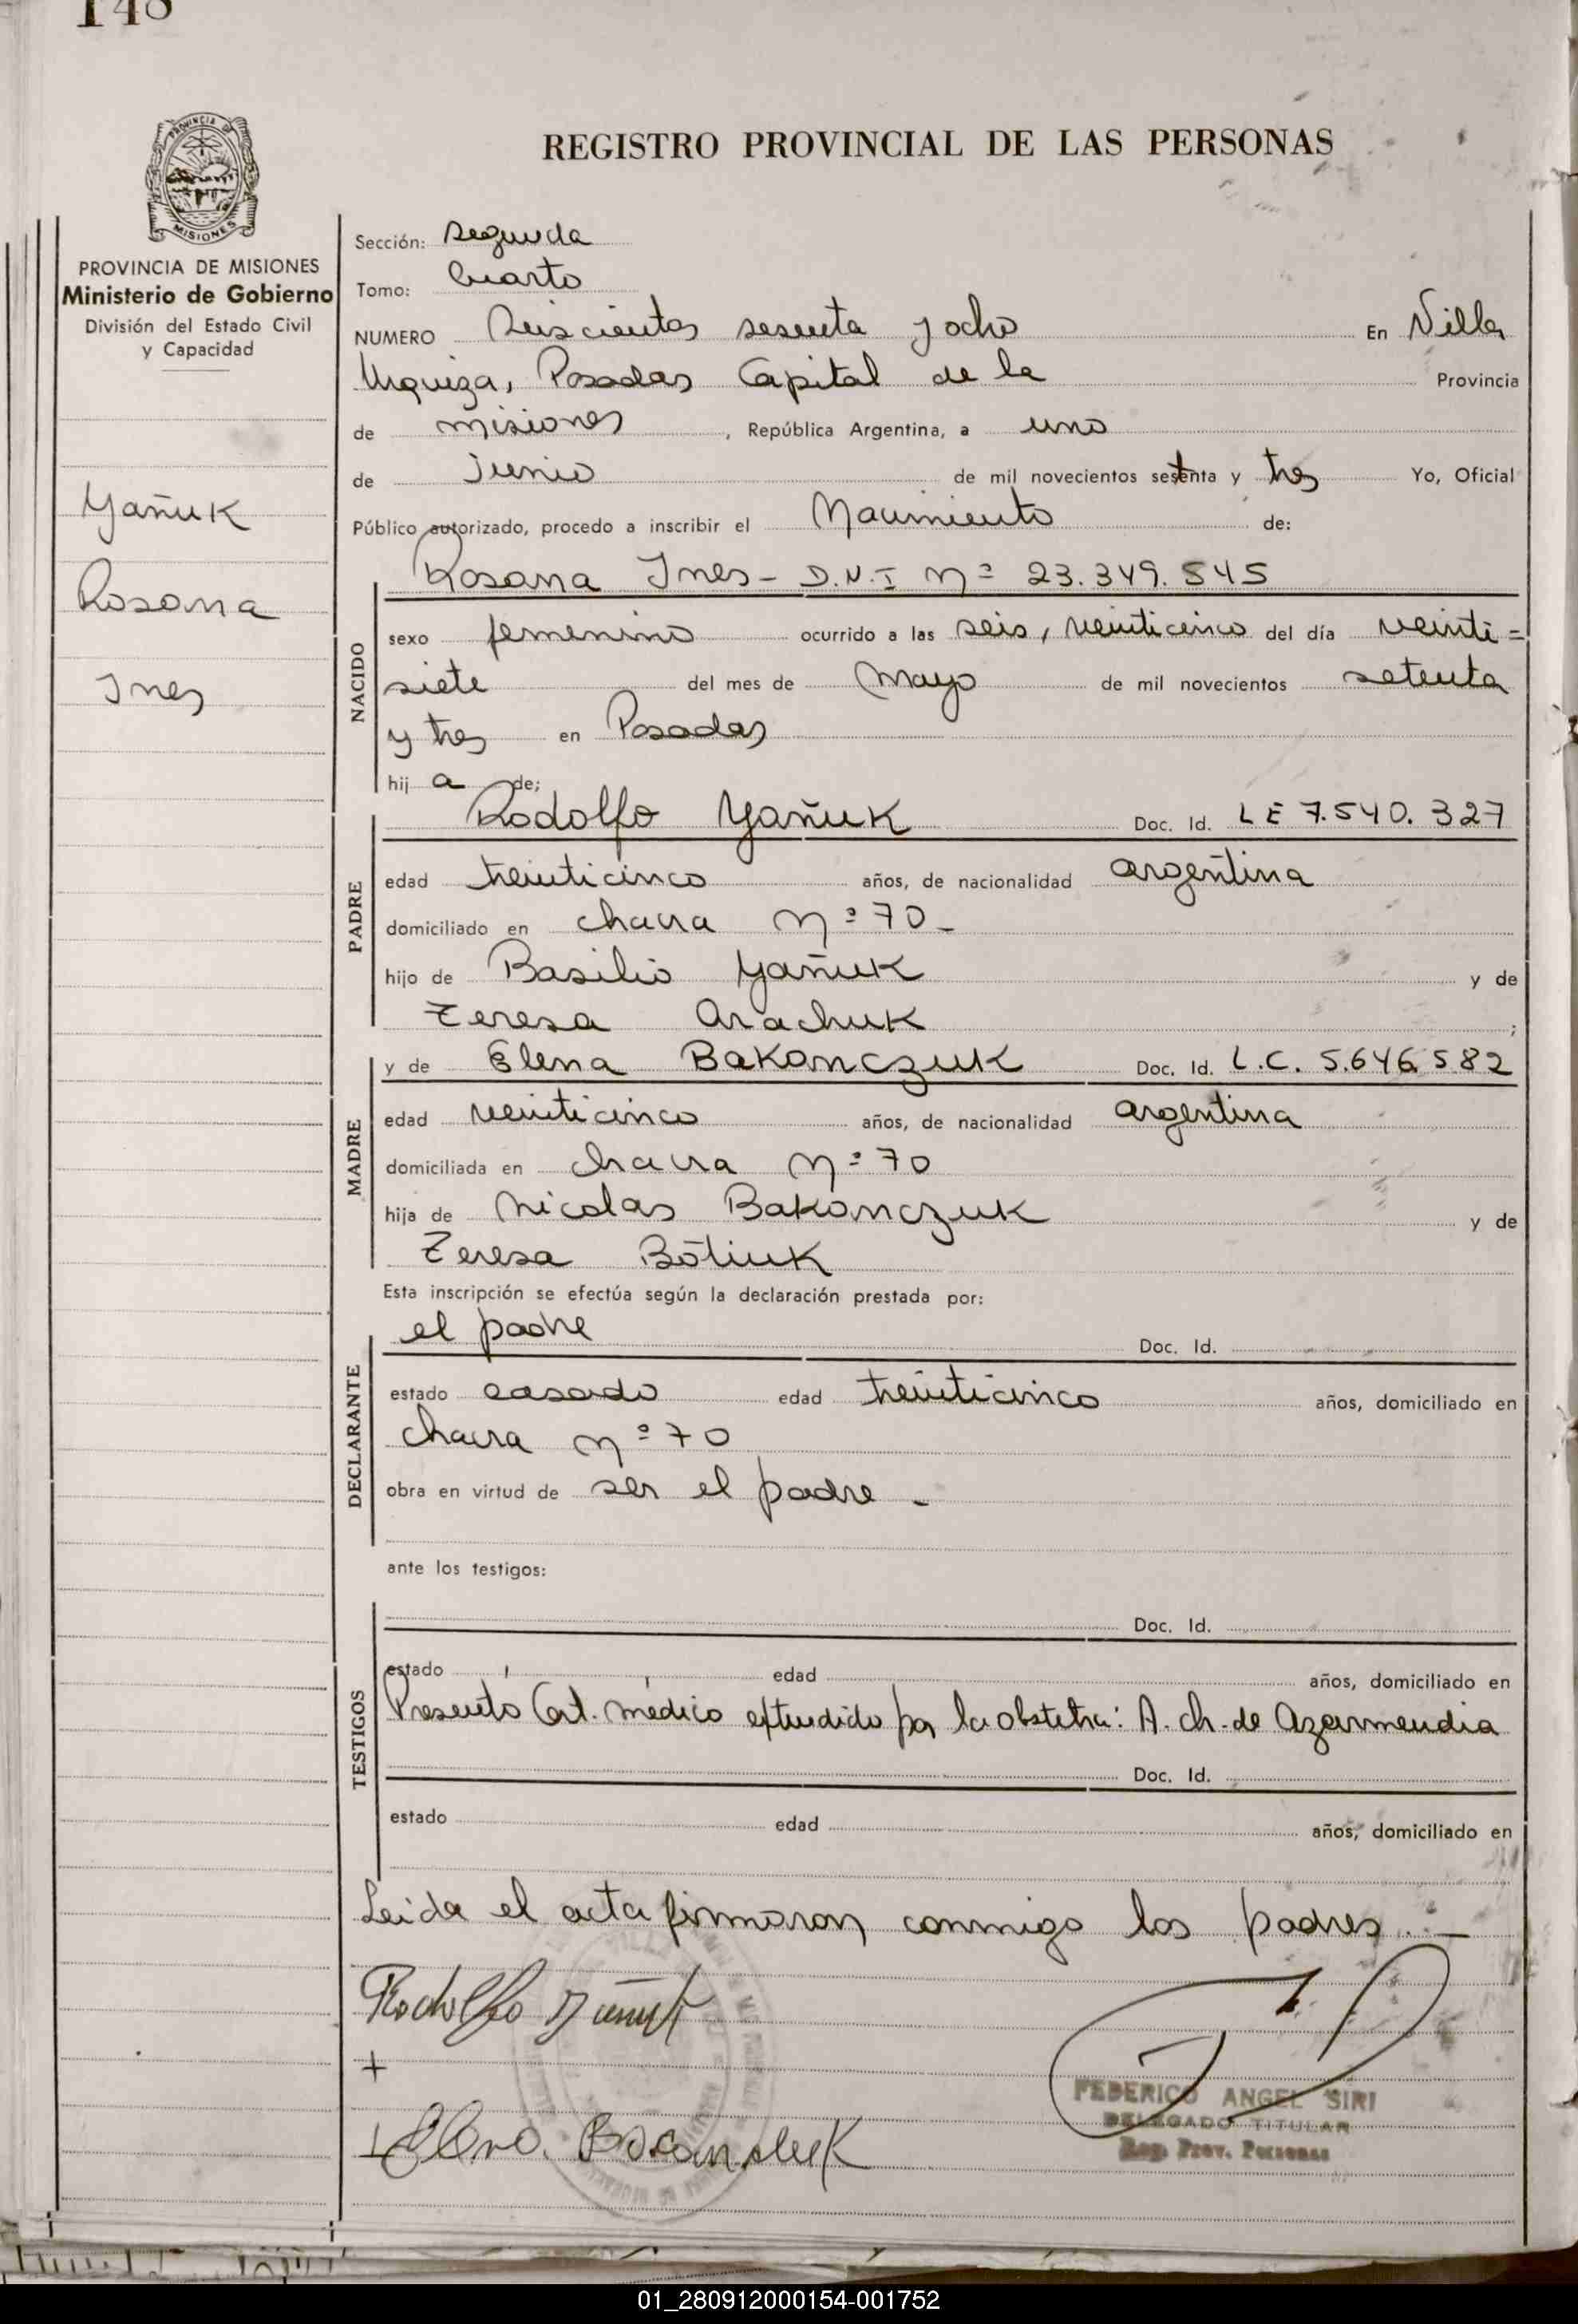 148
REGISTRO PROVINCIAL DE LAS PERSONAS
PROVINCIA DE
MISIONES
PROVINCIA DE MISIONES
Ministerio de Gobierno
División del Estado Civil
y Capacidad
Yañuk
Rosana
Ines
Sección: segunda
Tomo: Cuarto
NUMERO Seiscientos sesenta y ocho En Villa
Urquiza, Posadas Capital de la Provincia
de misiones, República Argentina, a uno
de junio de mil novecientos setenta y tres Yo, Oficial
Público autorizado, procedo a inscribir el Nacimiento de:
Rosana Ines - D.N.I Nº 23.349.545
NACIDO
sexo femenino ocurrido a las seis, veinticinco del día veinti=
siete del mes de Mayo de mil novecientos setenta
y tres en Posadas
hij a de;
PADRE
Rodolfo Yañuk Doc. Id. LE 7.540.327
edad treinticinco años, de nacionalidad argentina
domiciliado en chacra Nº 70_
hijo de Basilio Yañuk y de
Teresa Arachuk ;
MADRE
y de Elena Bakonczuk Doc. Id. L.C. 5.646.582
edad veinticinco años, de nacionalidad argentina
domiciliada en chacra Nº 70
hija de Nicolas Bakonczuk y de
Teresa Botiuk
Esta inscripción se efectúa según la declaración prestada por:
DECLARANTE
el padre Doc. Id.
estado casado edad treinticinco años, domiciliado en
chacra Nº 70
obra en virtud de ser el padre -
ante los testigos:
TESTIGOS
Doc. Id.
estado edad años, domiciliado en
Presentó Cert. médico extendido por la obstetra: A. ch. de Azarmendia
Doc. Id.
estado edad años, domiciliado en
Leida el acta firmaron conmigo los padres.-
Rodolfo Yañuk
+
Elena Bakonczuk
FEDERICO ANGEL SIRI
DELEGADO TITULAR
Reg. Prov. Personas
01_280912000154-001752